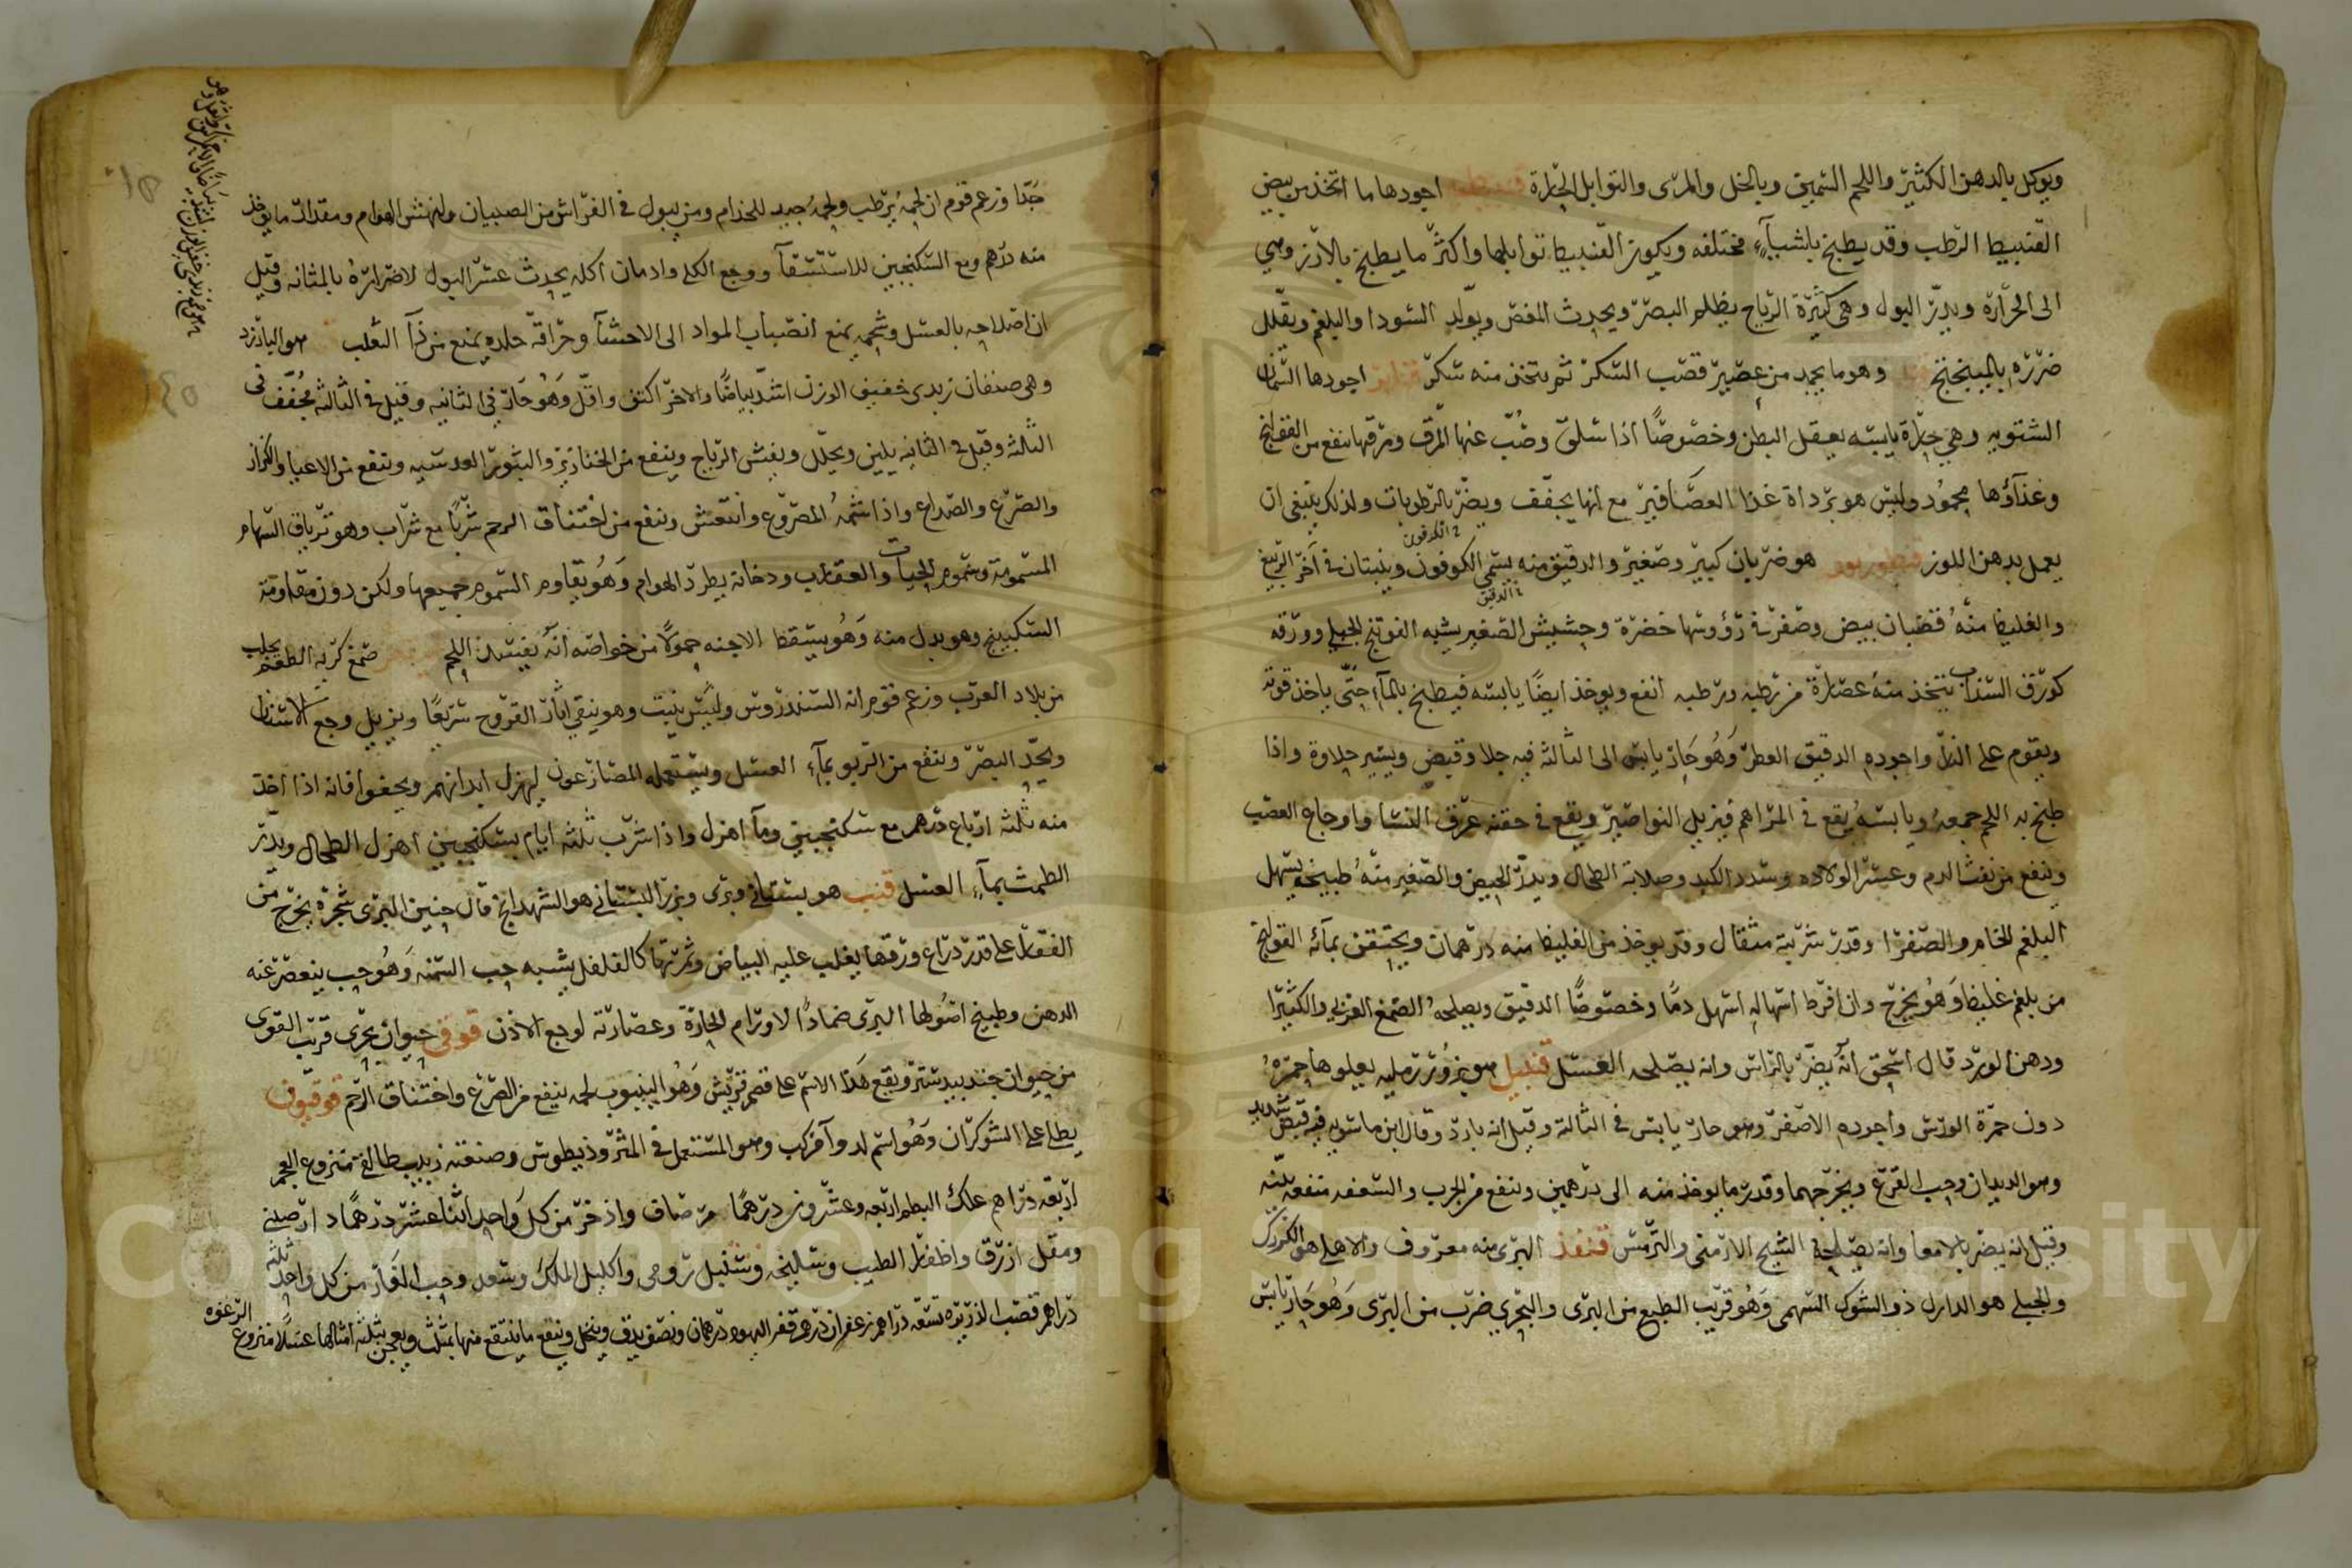 ويوكل بالدهن الكثير واللحم السمين وبالخل والمرى والتوابل الحارة قنبيطيه اجودها ما اتخذ من بيض
القنبيط الرطب وقد يطبخ باشيآء مختلفه ويكون القنبيط توابلها واكثر ما يطبخ بالارز وهي
الى الحرارة ويدر البول وهى كثيرة الرياح يظلم البصر ويحدث المغص ويولد السودا والبلغم ويقلل
ضرره بالميبختج قند وهو ما يجمد من عصير قصب السكر ثم يتخذ منه سكر قنابر اجودها السمان
الشتويه وهي حارة يابسه يعقل البطن وخصوصًا اذا سلق وصُبّ عنها المرق ومرقها ينفع من القولنج
وغذآؤها محمُود وليس هو برداة غذا العصافير مع انها يجفف ويضر بالرطوبات ولذلك ينبغى ان
يعمل بدهن اللوز قنطوريون هو ضربان كبير وصغير والدقيق منه يسمى الكوفون وينبتان في آخر الربيع
والغليظ منهُ قضبان بيض وصفرة في رؤوسها خضرة وحشيش الصغير يشبه الفوتنج الجبلي وورقه
كورق السذاب يتخذ منهُ عصارة من رطبه ورطبه انفع ويوخذ ايضًا يابسه فيطبخ بالمآء حتى ياخذ قوته
ويقوم على النار واجوده الدقيق العطر وَهُو حَار يابس الى الثالثة فيه جلا وقبض ويسير حلاوة واذا
طبخ به اللحم جمعهُ ويابسهُ يقع في المراهم فيزيل النواصير ويقع في حقنه عرق النسا واوجاع العصب
وينفع من نفث الدم وعسر الولاده وسدد الكبد وصلابة الطحال ويدر الحيض والصغير منهُ طبيخه يسهل
البلغم الخام والصفرا وقدر شربته مثقال وقد يوخذ من الغليظ منه درهمان ويحتقن بمآئه القولنج
من بلغم غليظ وَهُو يخرج وان افرط اسهاله اسهل دمًا وخصوصًا الدقيق ويصلحهُ الصمغ العربي والكثيرا
ودهن الورد قال اسحق انهُ يضر بالراس وانه يصلحه العسل قنبيل هو بزُور رمليه يعلوها حمرهُ
دون حمرة الورس واجوده الاصفر وهو حار يابس في الثالثة وقيل انه بارد وقال ابن ماسويه فيه قبض شديد
وهو الديدان وحب القرع ويخرجهما وقدر ما يوخذ منه الى درهمين وينفع من الجرب والسعفه منفعه بيّنه
وقيل انه يضر بالامعا وانه يصلحهُ الشيح الارمنى والترمس قنفذ البرى منه معروف والاهلي هو
والجبلي هو الدلدل ذو الشوك السهمى وَهُو قريب الطبع من البرى والبحري ضرب من البرى وَهُو حَار يابس
جدّا وزعم قوم ان لحمهُ يرطب ولحمهُ جيد للجذام ومن يبول في الفراش من الصبيان ولنهش الهوام ومقدار ما يوخذ
منه درهم ومع السكنجبين للاستسقآ ووجع الكلى وادمان اكله يحدث عسر البول لاضرارهُ بالمثانه وقيل
ان اصلاحه بالعسل وشحمه يمنع انصباب المواد الى الاحشآ وحراقة جلده يمنع من دآ الثعلب هو البارزد
وهى صنفان زبدى خفيف الوزن اشد بياضًا والاخر اكثف واقل وَهُو حَار في الثانيه وقيل في الثالثه مجُفّف في
الثلثة وقيل في الثانيه يلين ويحلل ويفش الرياح وينفع من الخنازير والبثور العدسيه وينفع من الاعيا والكزاز
والصرع والصداع واذا شمهُ المصروع وانتعش وينفع من اختناق الرحم شربًا مع شراب وهو ترياق السهام
المسمومة وسموم الحيات والعقارب ودخانه يطرد الهوام وَهُو يقاوم السموم جميعها ولكن دون مقاومة
السكبينج وهو بدل منه وَهُو يسقط الاجنه حمولًا من خواصه انهُ يفسد اللحم صمغ كريه الطعم يجلب
من بلاد العرب وزعم قوم انه السندروس وليس يثبت وهو ينقي اثار القروح سريعًا ويزيل وجع الاسنان
ويحد البصر وينفع من الربو بمآء العسل ويستعمله المصارعون ليهزل ابدانهم ويجفوا فانه اذا اخذ
منه ثلثة ارباع درهم مع سكنجبين ومآ اهزل واذا شرب ثلثه ايام بسكنجبين اهزل الطحال ويدر
الطمث بمآء العسل قنب هو بستاني وبرى وبزر البستاني هو الشهدانج قال حنين البرى شجرة يخرج من
القفار على قدر ذراع ورقها يغلب عليه البياض وثمرتها كالفلفل يشبه حب السمنه وَهُو حب ينعصر عنه
الدهن وطبيخ اصُولها البرى ضمادًا لاورام الحارة وعصارته لوجع الاذن قوفى حيوان بحرى قريب القوى
من حيوان جندبيدستر ويقع هَذا الاسم على قضم قريش وَهُو الينبوب لحمه ينفع من الصرع واختناق الرحم قوقبون
يطلع على الشوكران وَهُو اسم لدوآ مركب وهو المستعمل في المثروذيطوس وصنعته زبيب طائفى منزوع العجم
اربعه دراهم علك البطم اربعه وعشرون درهمًا مر صاف واذخر من كل وَاحد اثنا عشر درهمًا دارصيني
ومقل ازرق واظفار الطيب وسليخه وسنبل رومى واكليل الملك وسعد وحب الغَار من كل واحد ثلثه
دراهم قصب الذريره تسعه دراهم زعفران درهم قفر اليهود درهمان ونصف يدق وينخل وينقع ما ينتقع منها بمثلث ويعجن بثلثه امثالها عسلًا منزوع الرغوه